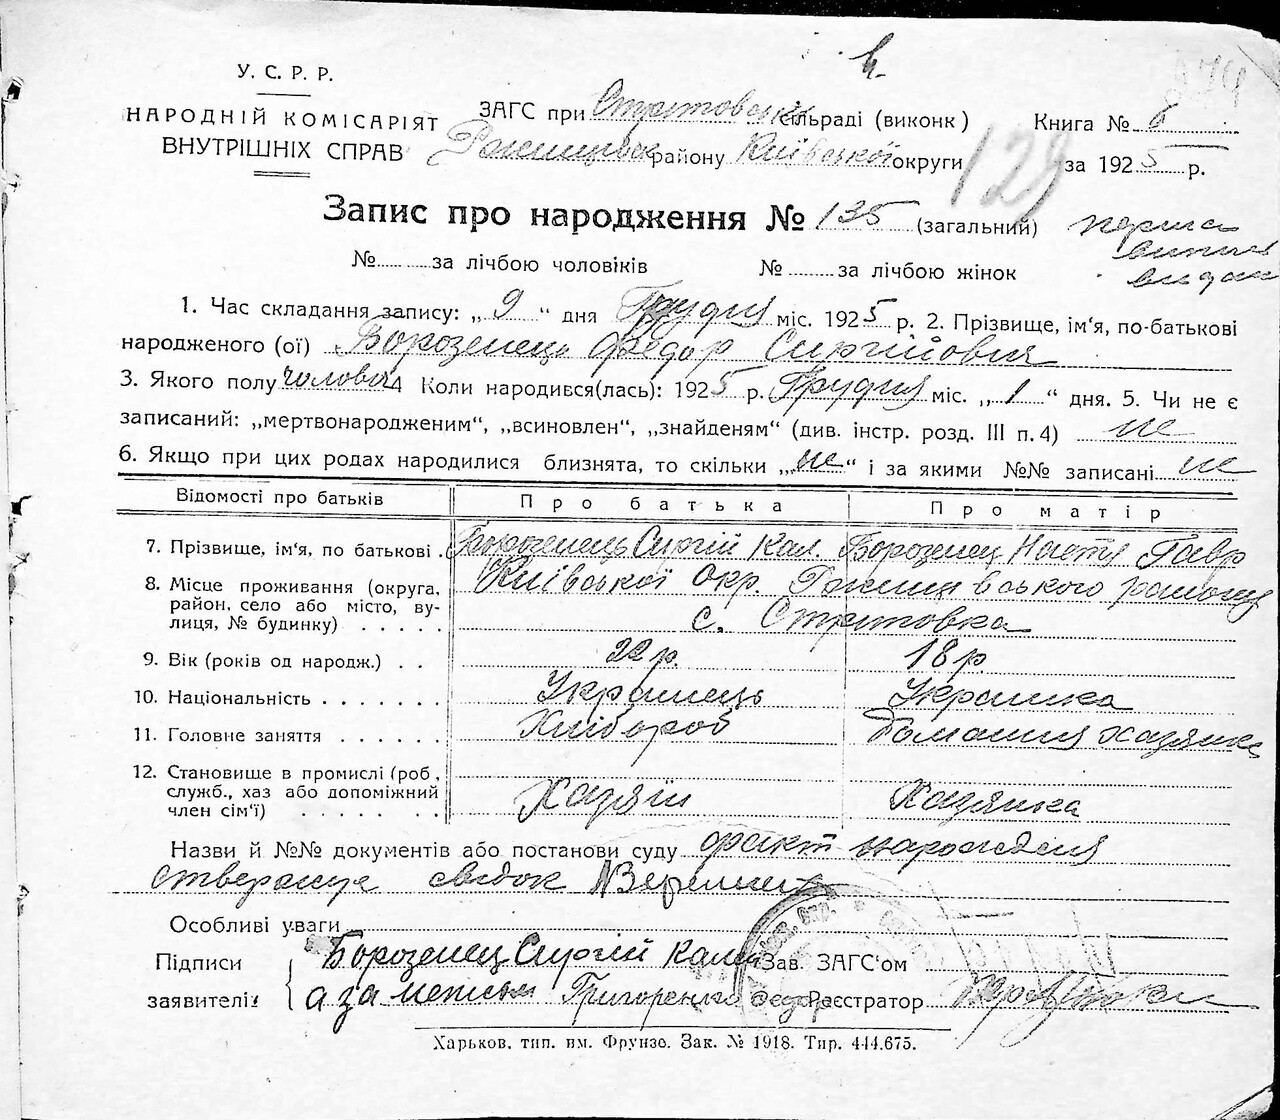 У. С. Р. Р.
НАРОДНІЙ КОМІСАРІЯТ
ВНУТРІШНІХ СПРАВ
ЗАГС при Стритовській сільраді (виконк)
Ржищівськ району Київської округи
Книга № 6
за 1925 р.
129
Запис про народження № 135 (загальний)
перша
видан
№ ........ за лічбою чоловіків № ........ за лічбою жінок
1. Час складання запису: „ 9 “ дня Грудня міс. 1925 р. 2. Прізвище, ім'я, по-батькові
народженого (ої) Борозенець Федор Сиргійович
3. Якого полу чоловіч 4 Коли народився(лась): 1925 р. Грудня міс. „ 1 “ дня. 5. Чи не є
записаний: „мертвонародженим“, „всиновлен“, „знайденям“ (див. інстр. розд. III п. 4) не
6. Якщо при цих родах народилися близнята, то скільки „ не “ і за якими №№ записані не
Відомості про батьків Про батька Про матір
7. Прізвище, ім'я, по батькові . Борозенець Сиргій Кал. Борозенец Настя Гавр
8. Місце проживання (округа, Київської Окр. Ржищівського району
район, село або місто, ву-
лиця, № будинку) . . . . . с. Стритовка
9. Вік (років од народж.) . . 22 р. 18 р.
10. Національність . . . . . . . Українець Українка
11. Головне заняття . . . . . . Хлібороб Домашня хазяйка
12. Становище в промислі (роб.,
служб., хаз або допоміжний Хазяїн Хазяйка
член сім'ї) . . . . . . . .
Назви й №№ документів або постанови суду факт народження
стверджує свідок
Особливі уваги
Підписи Борозенец Сиргій Зав. ЗАГС'ом
заявителів: а за Григоренко Реєстратор
Харьков. тип. им. Фрунзо. Зак. № 1918. Тир. 444.675.